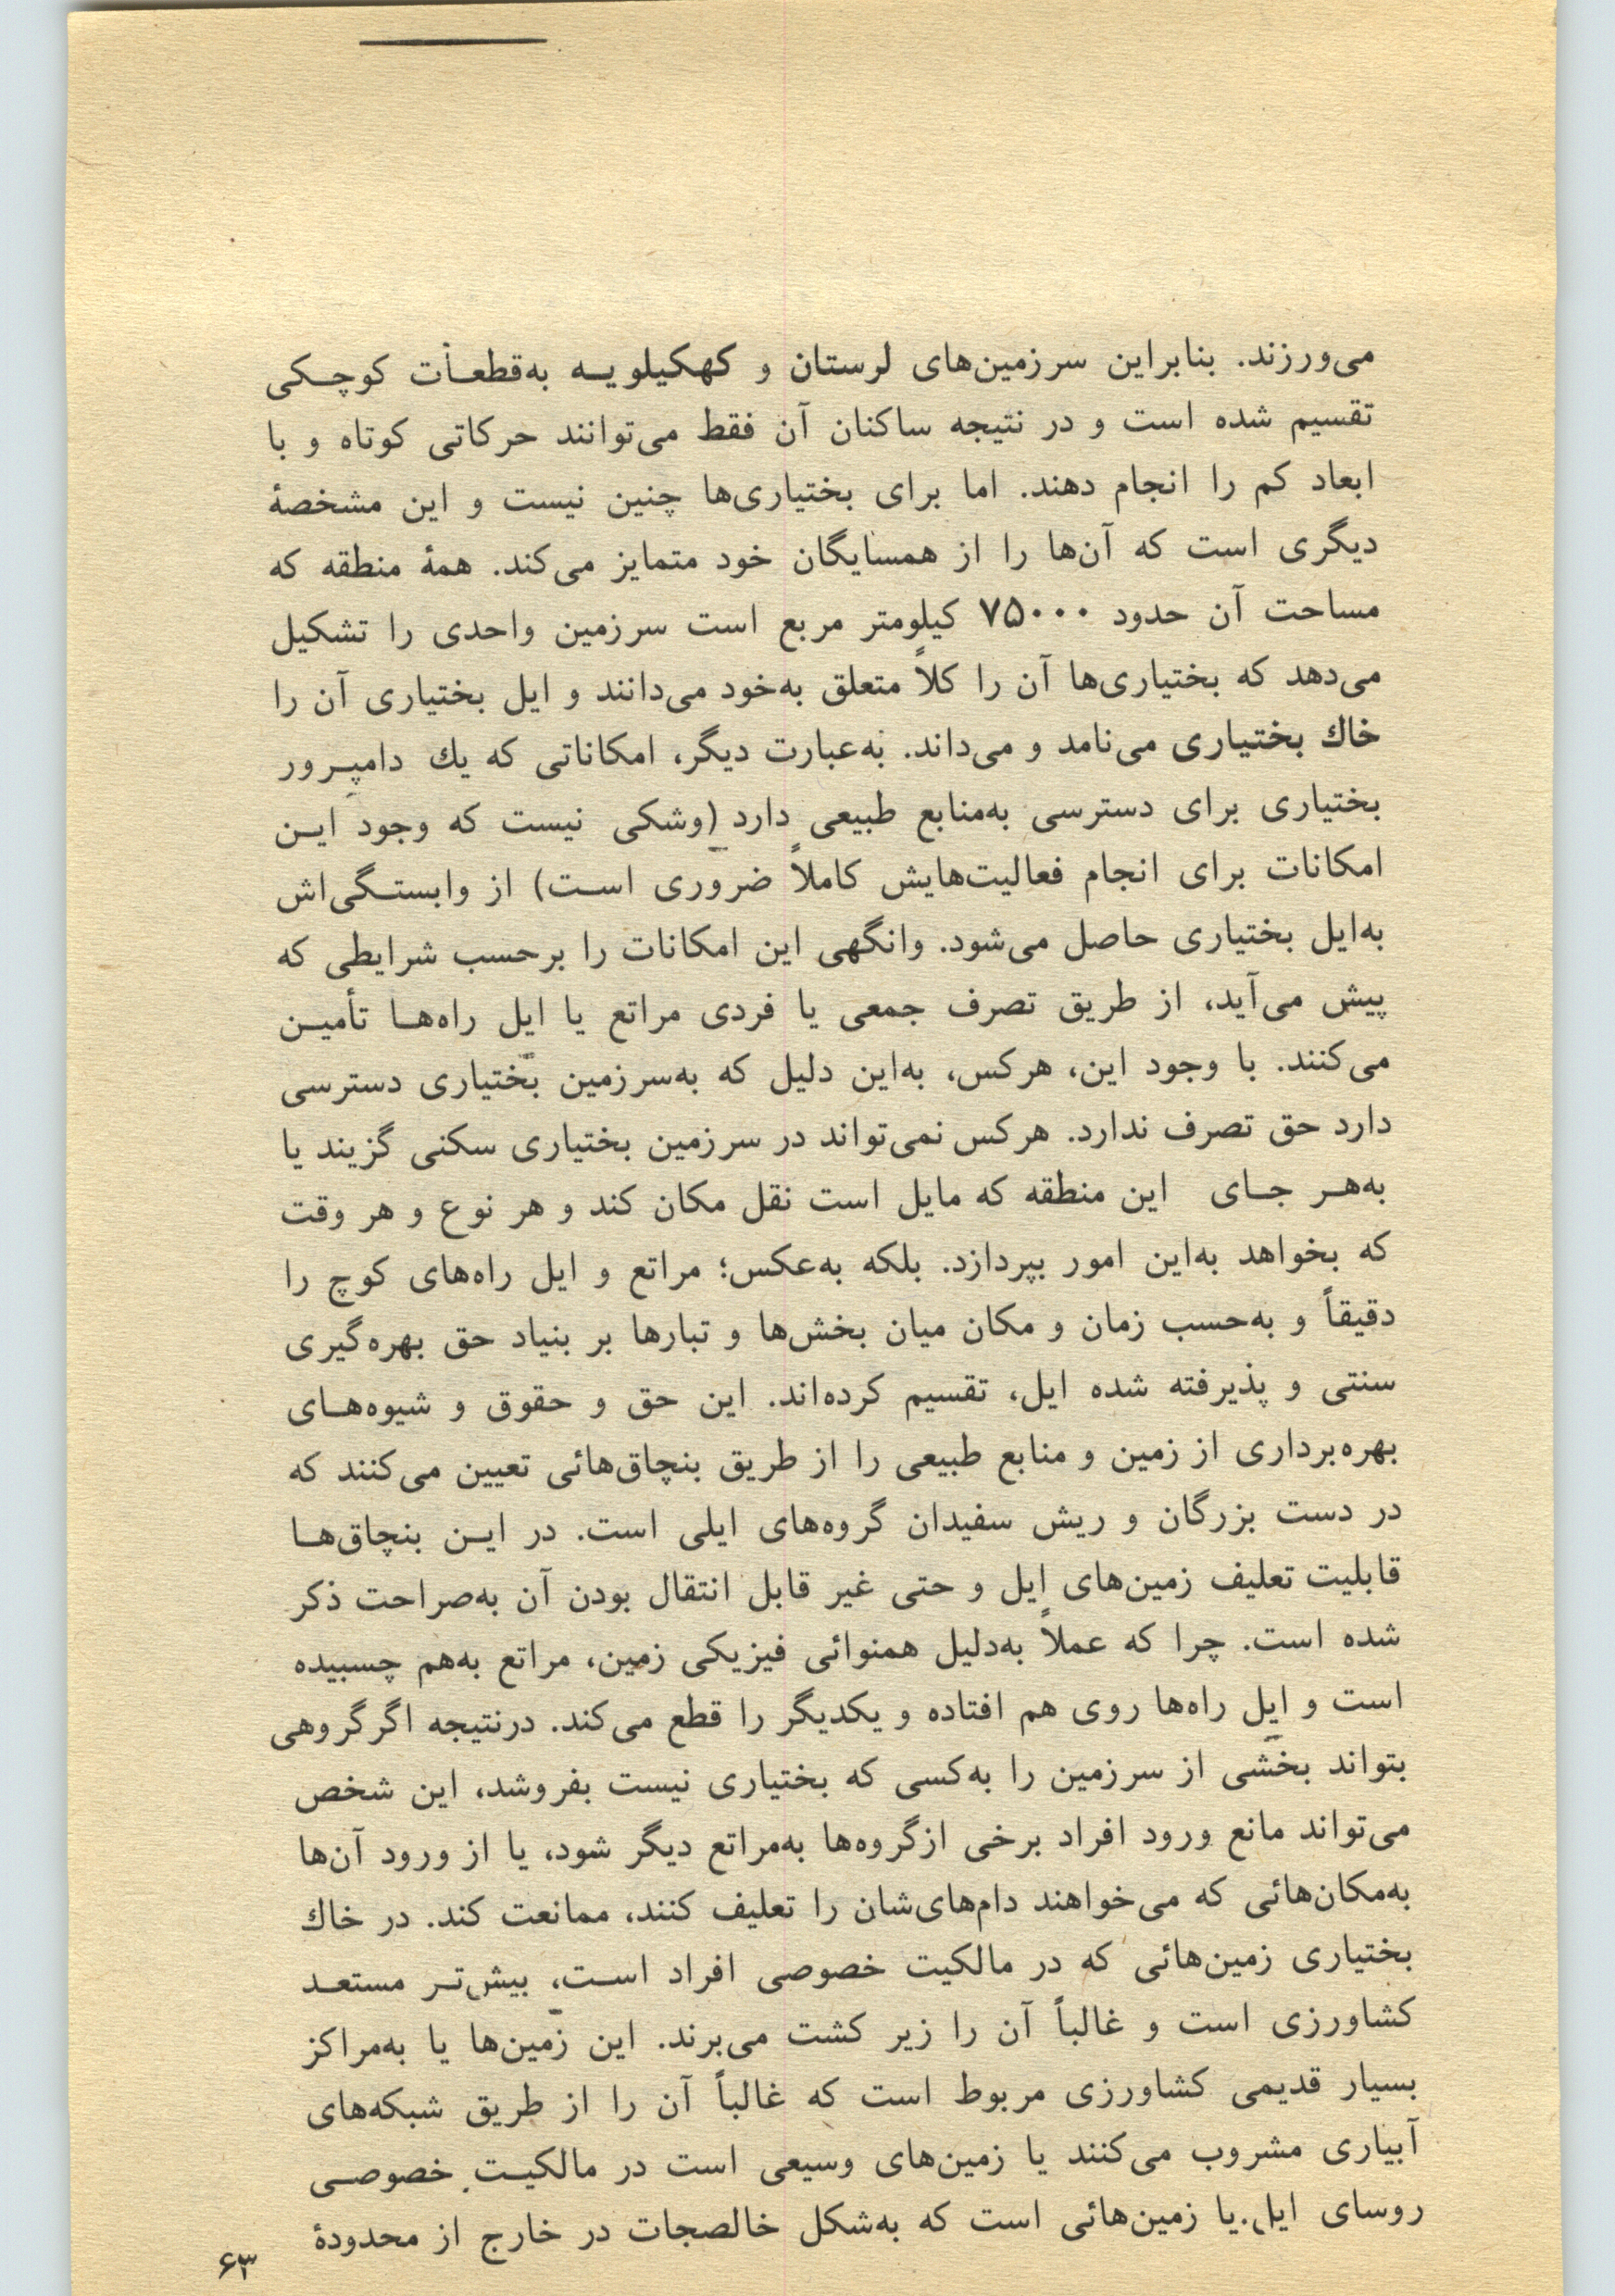 می‌ورزند. بنابراین سرزمین‌های لرستان و کهکیلویـه به‌قطعـات کوچـکی
تقسیم شده است و در نتیجه ساکنان آن فقط می‌توانند حرکاتی کوتاه و با
ابعاد کم را انجام دهند. اما برای بختیاری‌ها چنین نیست و این مشخصهٔ
دیگری است که آن‌ها را از همسایگان خود متمایز می‌کند. همهٔ منطقه که
مساحت آن حدود ۷۵۰۰۰ کیلومتر مربع است سرزمین واحدی را تشکیل
می‌دهد که بختیاری‌ها آن را کلاً متعلق به‌خود می‌دانند و ایل بختیاری آن را
خاك بختیاری می‌نامد و می‌داند. به‌عبارت دیگر، امکاناتی که یك دامپـرور
بختیاری برای دسترسی به‌منابع طبیعی دارد (وشکی نیست که وجود ایـن
امکانات برای انجام فعالیت‌هایش کاملاً ضروری اسـت) از وابستـگی‌اش
به‌ایل بختیاری حاصل می‌شود. وانگهی این امکانات را برحسب شرایطی که
پیش می‌آید، از طریق تصرف جمعی یا فردی مراتع یا ایل راه‌هـا تأمیـن
می‌کنند. با وجود این، هرکس، به‌این دلیل که به‌سرزمین بختیاری دسترسی
دارد حق تصرف ندارد. هرکس نمی‌تواند در سرزمین بختیاری سکنی گزیند یا
به‌هـر جـای این منطقه که مایل است نقل مکان کند و هر نوع و هر وقت
که بخواهد به‌این امور بپردازد. بلکه به‌عکس؛ مراتع و ایل راه‌های کوچ را
دقیقاً و به‌حسب زمان و مکان میان بخش‌ها و تبارها بر بنیاد حق بهره‌گیری
سنتی و پذیرفته شده ایل، تقسیم کرده‌اند. این حق و حقوق و شیوه‌هـای
بهره‌برداری از زمین و منابع طبیعی را از طریق بنچاق‌هائی تعیین می‌کنند که
در دست بزرگان و ریش سفیدان گروه‌های ایلی است. در ایـن بنچاق‌هـا
قابلیت تعلیف زمین‌های ایل و حتی غیر قابل انتقال بودن آن به‌صراحت ذکر
شده است. چرا که عملاً به‌دلیل همنوائی فیزیکی زمین، مراتع به‌هم چسبیده
است و ایل راه‌ها روی هم افتاده و یکدیگر را قطع می‌کند. درنتیجه اگرگروهی
بتواند بخشی از سرزمین را به‌کسی که بختیاری نیست بفروشد، این شخص
می‌تواند مانع ورود افراد برخی ازگروه‌ها به‌مراتع دیگر شود، یا از ورود آن‌ها
به‌مکان‌هائی که می‌خواهند دام‌های‌شان را تعلیف کنند، ممانعت کند. در خاك
بختیاری زمین‌هائی که در مالکیت خصوصی افراد اسـت، بیش‌تـر مستعـد
کشاورزی است و غالباً آن را زیر کشت می‌برند. این زمین‌ها یا به‌مراکز
بسیار قدیمی کشاورزی مربوط است که غالباً آن را از طریق شبکه‌های
آبیاری مشروب می‌کنند یا زمین‌های وسیعی است در مالکیـت خصوصـی
روسای ایل.یا زمین‌هائی است که به‌شکل خالصجات در خارج از محدودهٔ
۶۳